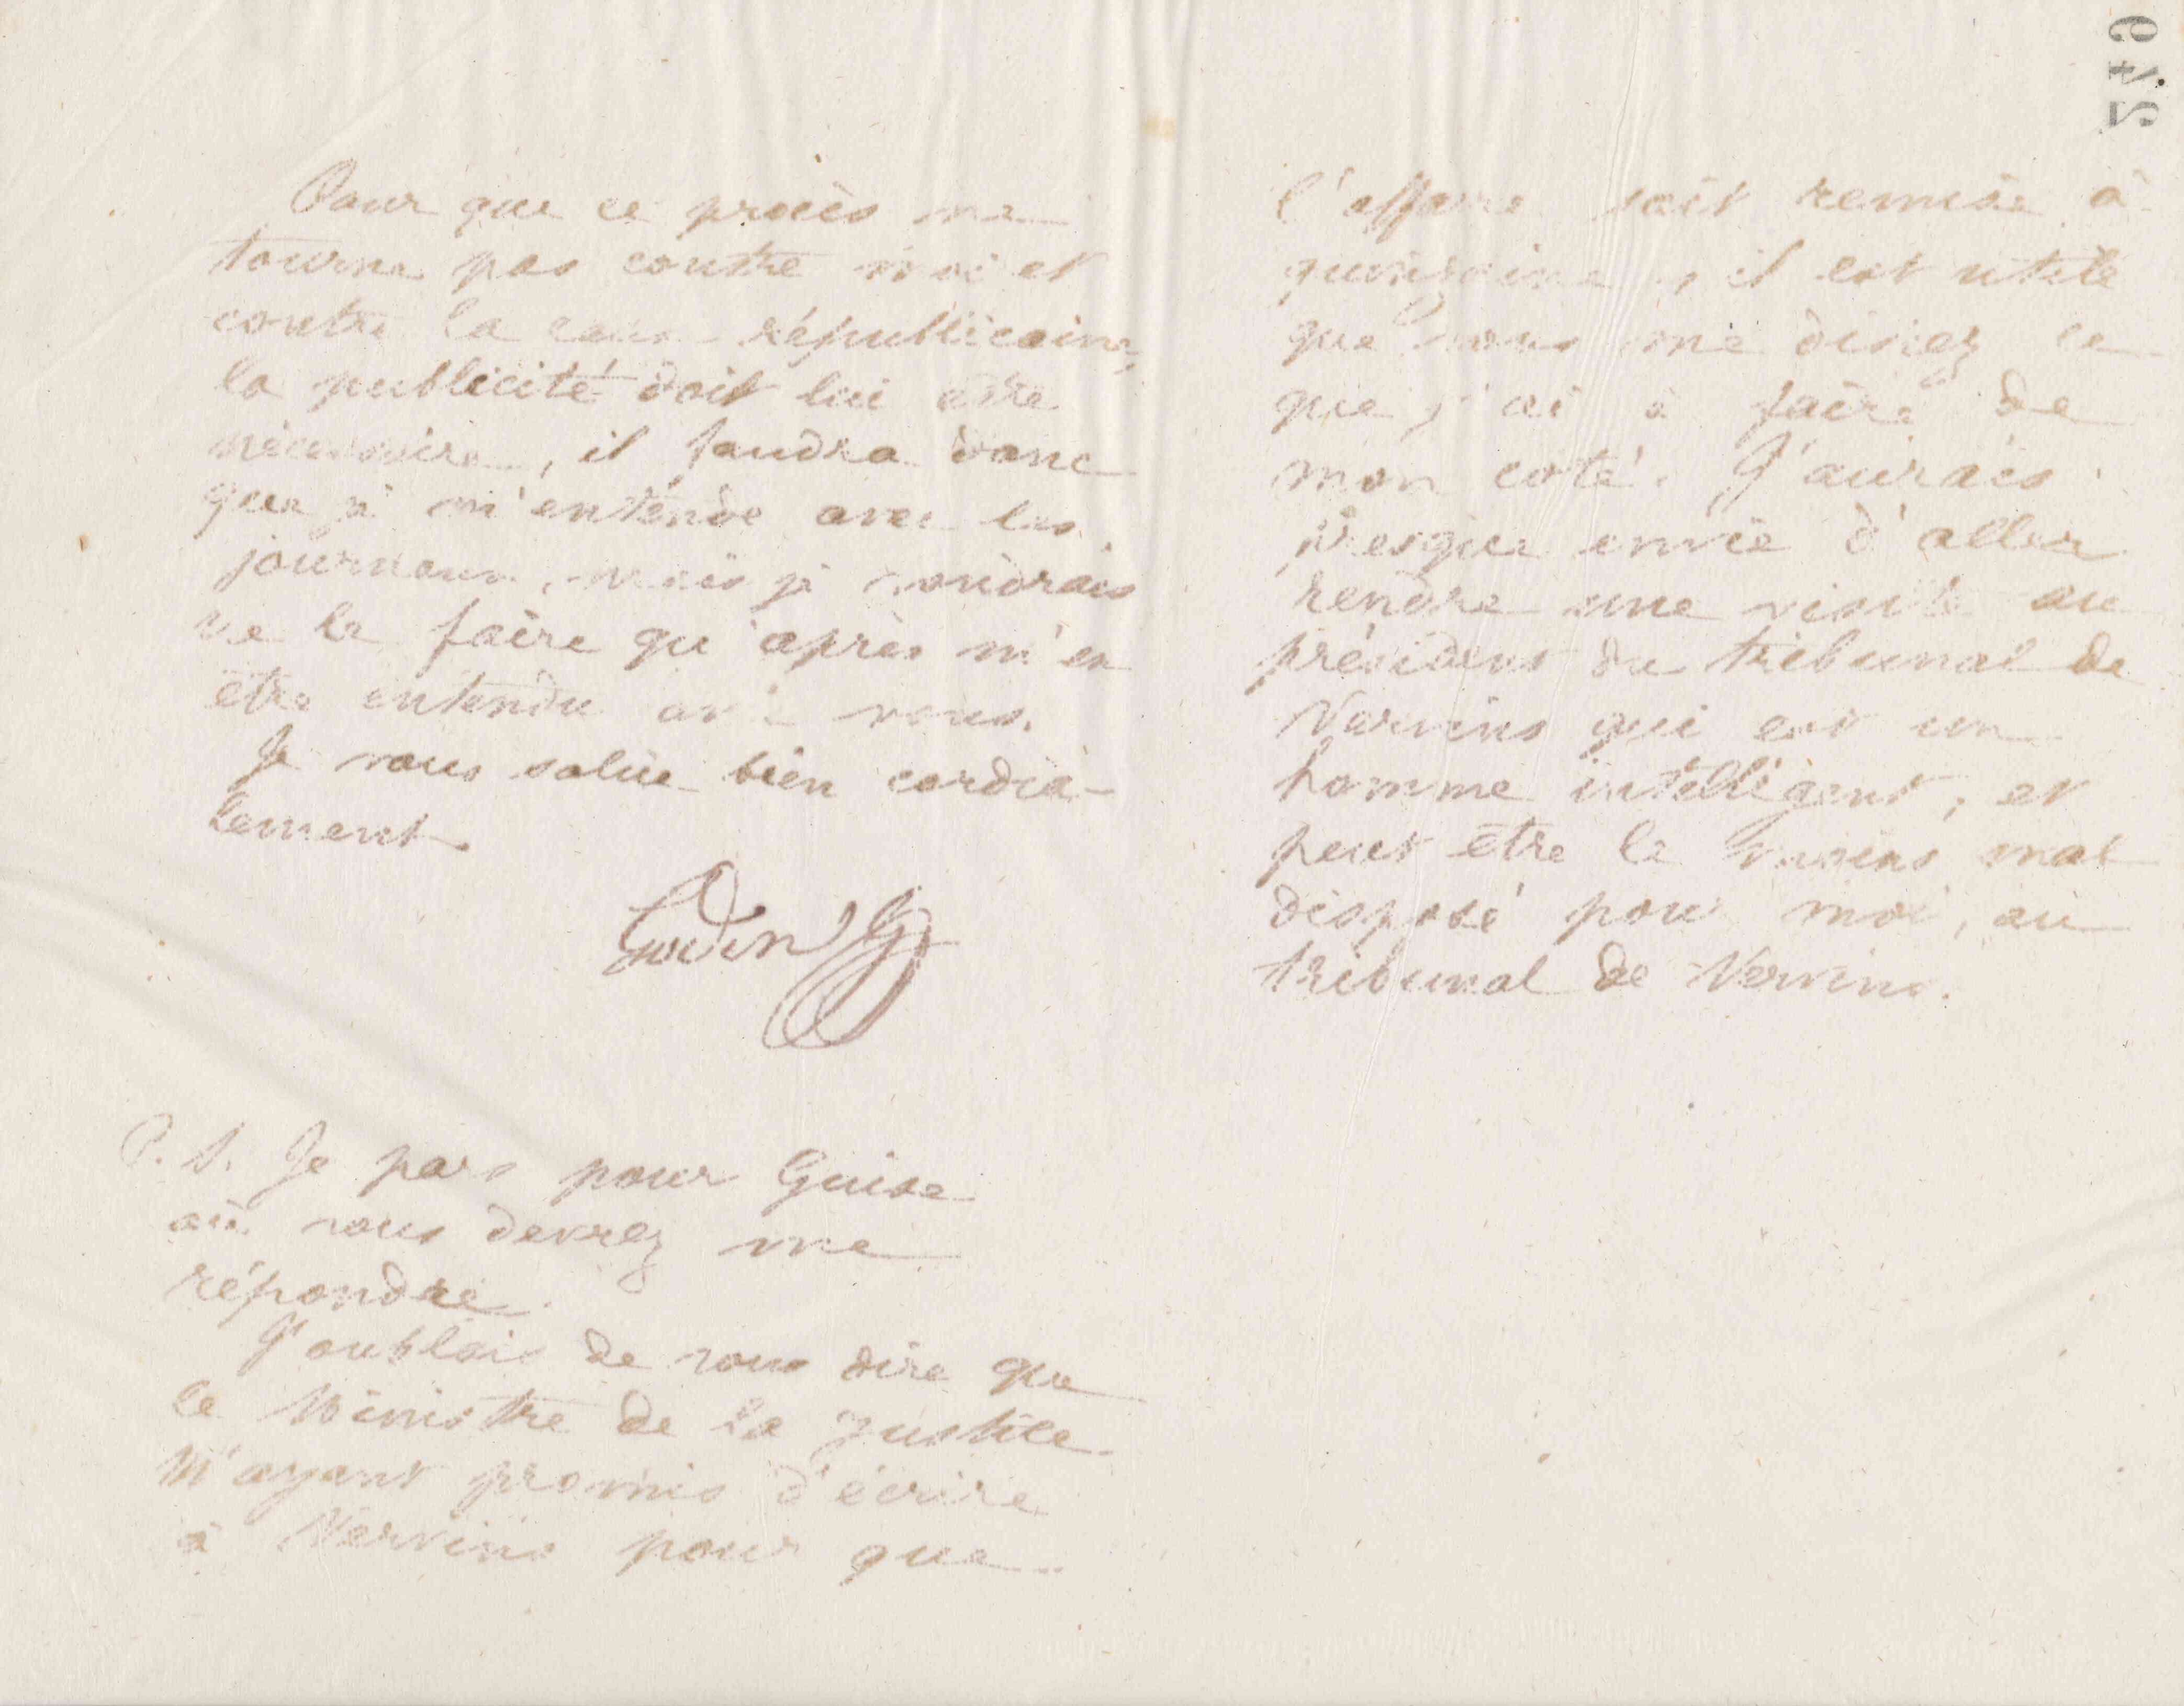 Pour que ce procès ne
tourne pas contre moi et
contre la cause républicaine,
la publicité doit lui être
nécessaire, il faudra donc
que je m'entende avec les
journaux, mais je voudrais
ne le faire qu'après m'en
être entendu avec vous.
Je vous salue bien cordia-
lement.
Godin
P.S. Je pars pour Guise
où vous devrez me
répondre.
J'oubliais de vous dire que
le Ministre de la justice
m'ayant promis d'écrire
à Vervins pour que
l'affaire soit remise à
quinzaine, il est utile
que vous me disiez ce
que j'ai à faire de
mon coté. J'aurais
presque envie d'aller
rendre une visite au
président du tribunal de
Vervins qui est un
homme intelligent, et
peut être le moins mal
disposé pour moi, au
tribunal de Vervins.